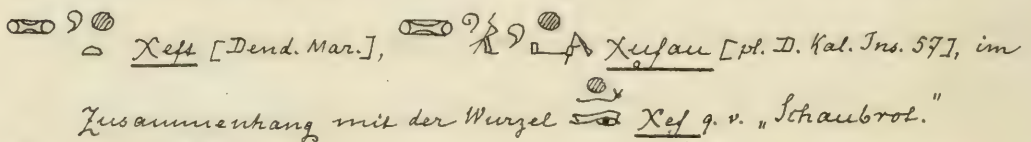 Xeft [Dend. Mar.], Xufau [pl. D. Kal. Ins. 57], im
Zusammenhang mit der Wurzel Xef q. v. „Schaubrot."